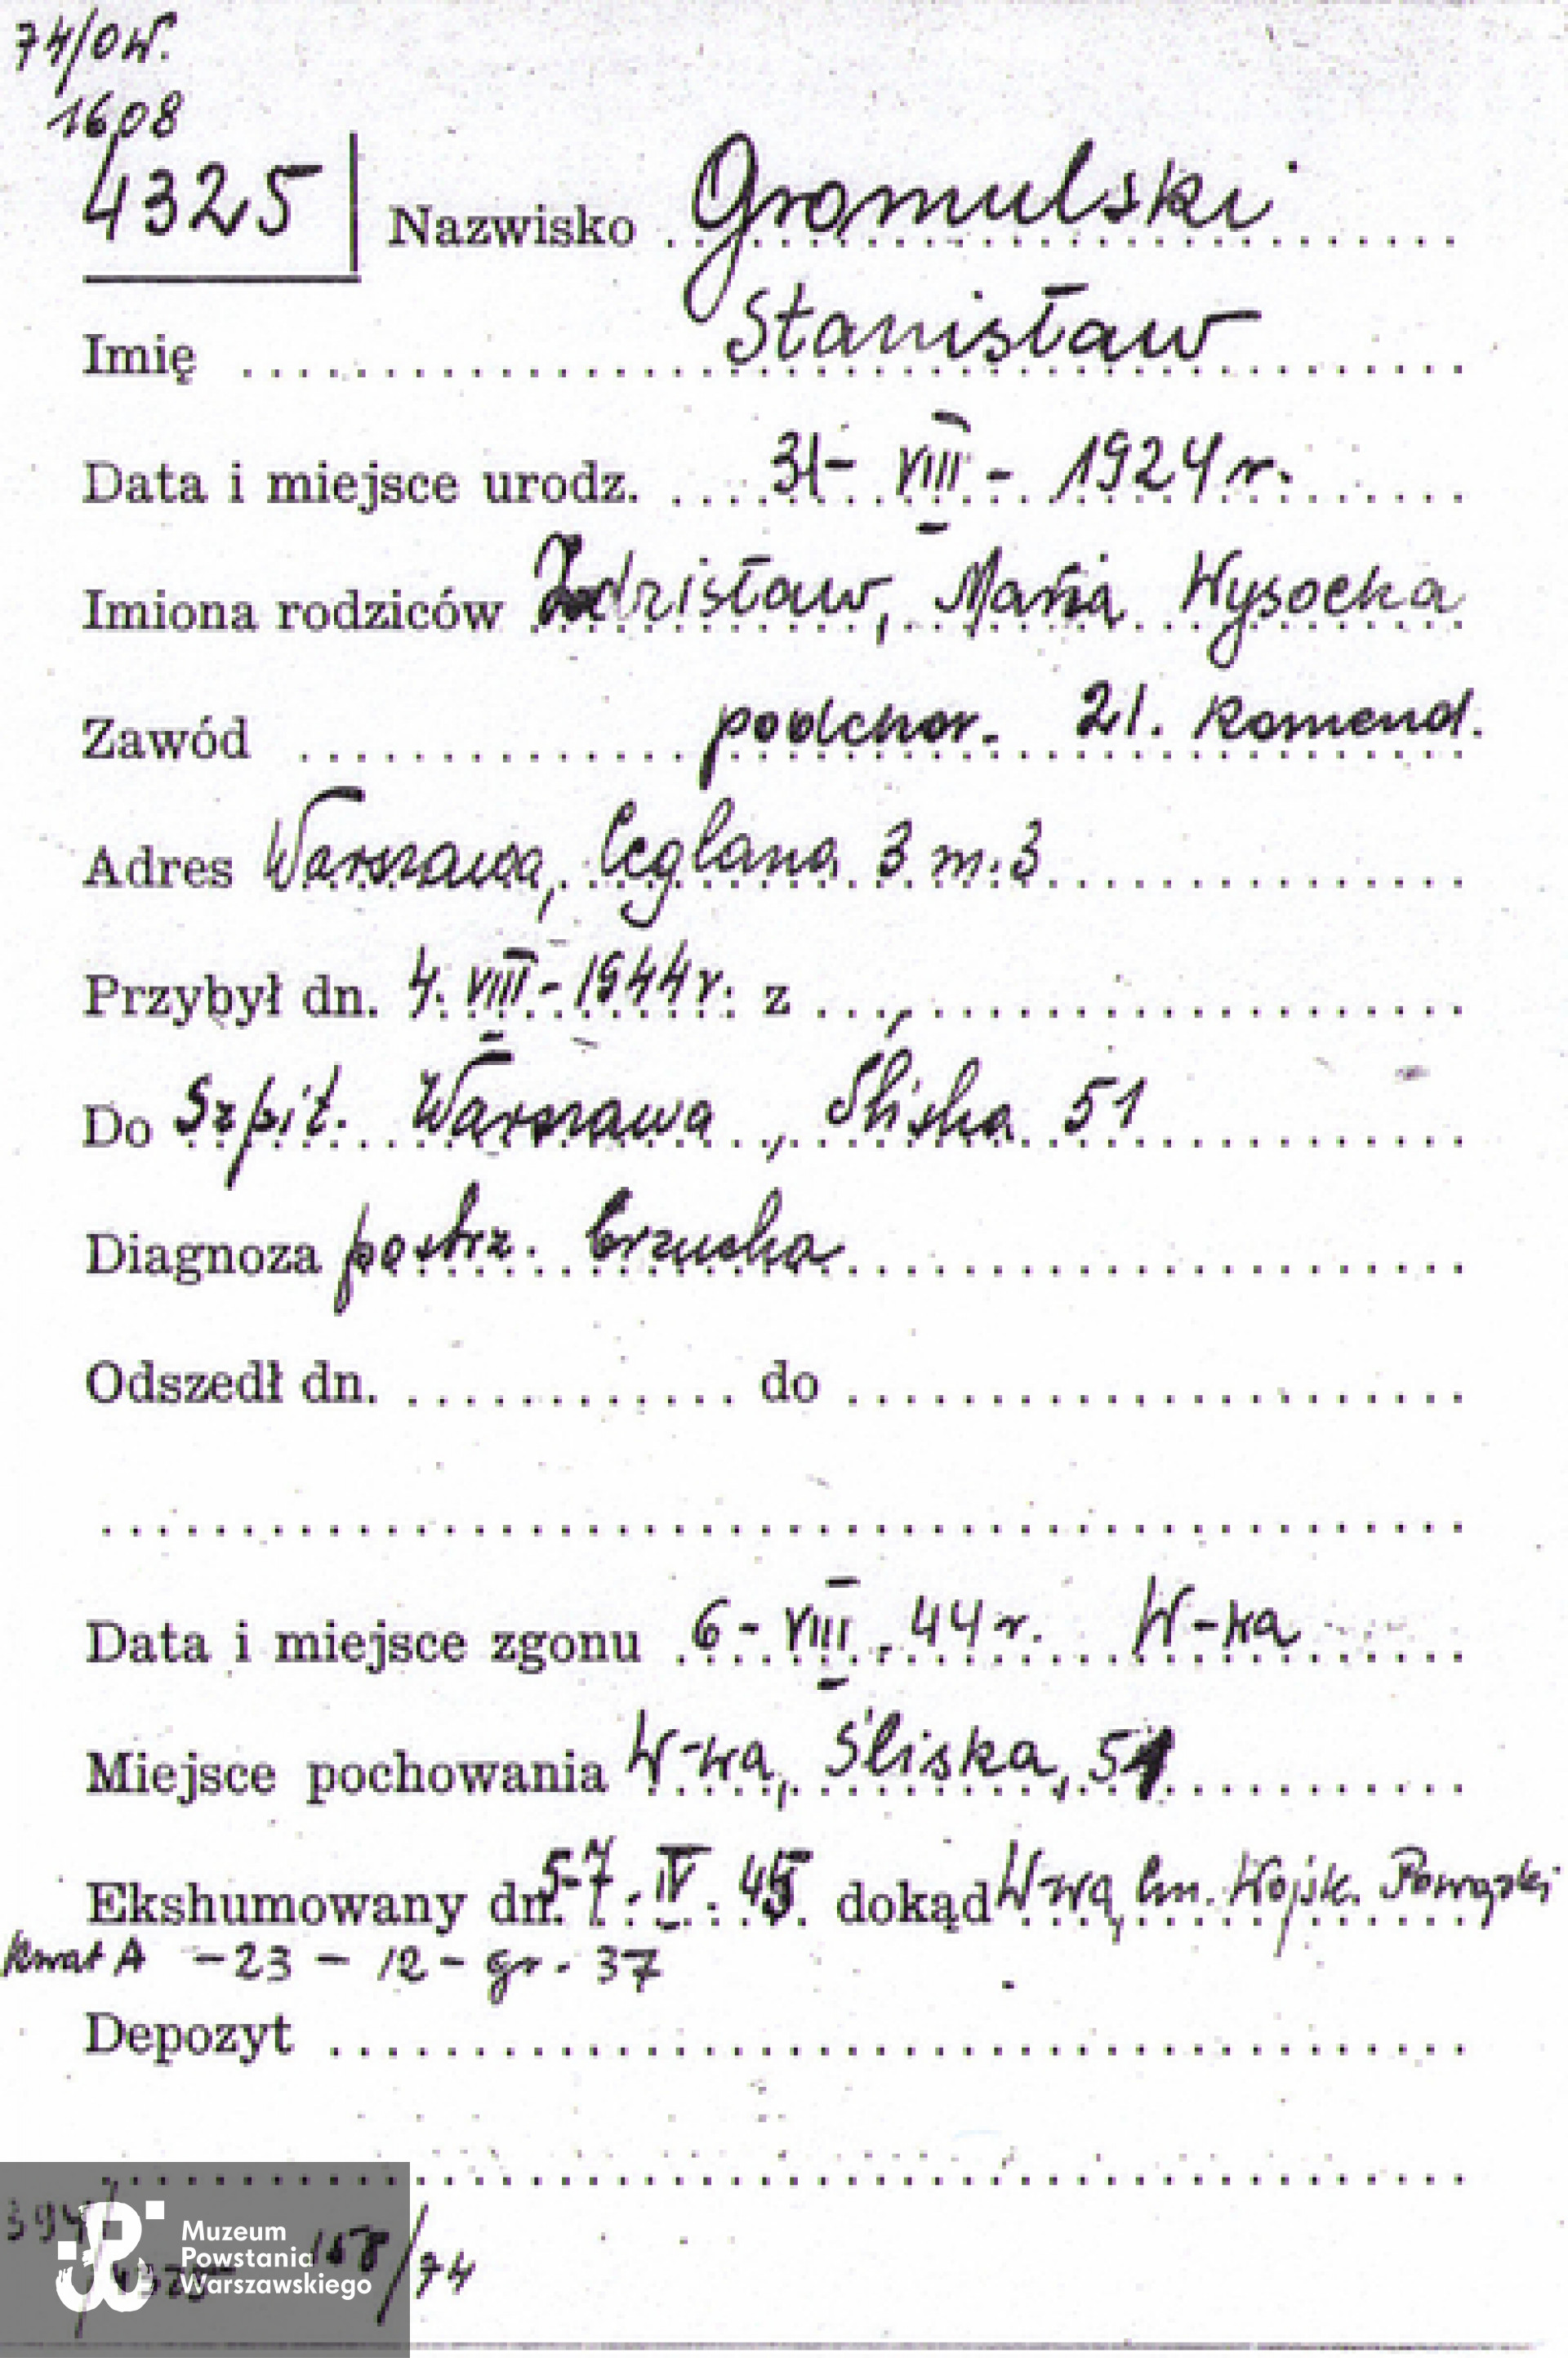 74/OW.
1608
4325 Nazwisko Gromulski
Imię Stanisław
Data i miejsce urodz. 31- VIII - 1924 r.
Imiona rodziców Zdzisław, Maria Wysocka
Zawód podchor. 21. komend.
Adres Warszawa, Ceglana 3 m. 3
Przybył dn. 4. VIII - 1944 r. z
Do Szpit. Warszawa, Śliska 51
Diagnoza postrz. brzucha
Odszedł dn. do
Data i miejsce zgonu 6 - VIII . 44 r. W-wa
Miejsce pochowania W-wa, Śliska, 51
Ekshumowany dn. 5-7. IV. 45 dokąd W-wa, Cm. Wojsk. Powązki
Kwat A - 23 - 12 - gr. 37
Depozyt
Muzeum
Powstania 158/74
Warszawskiego